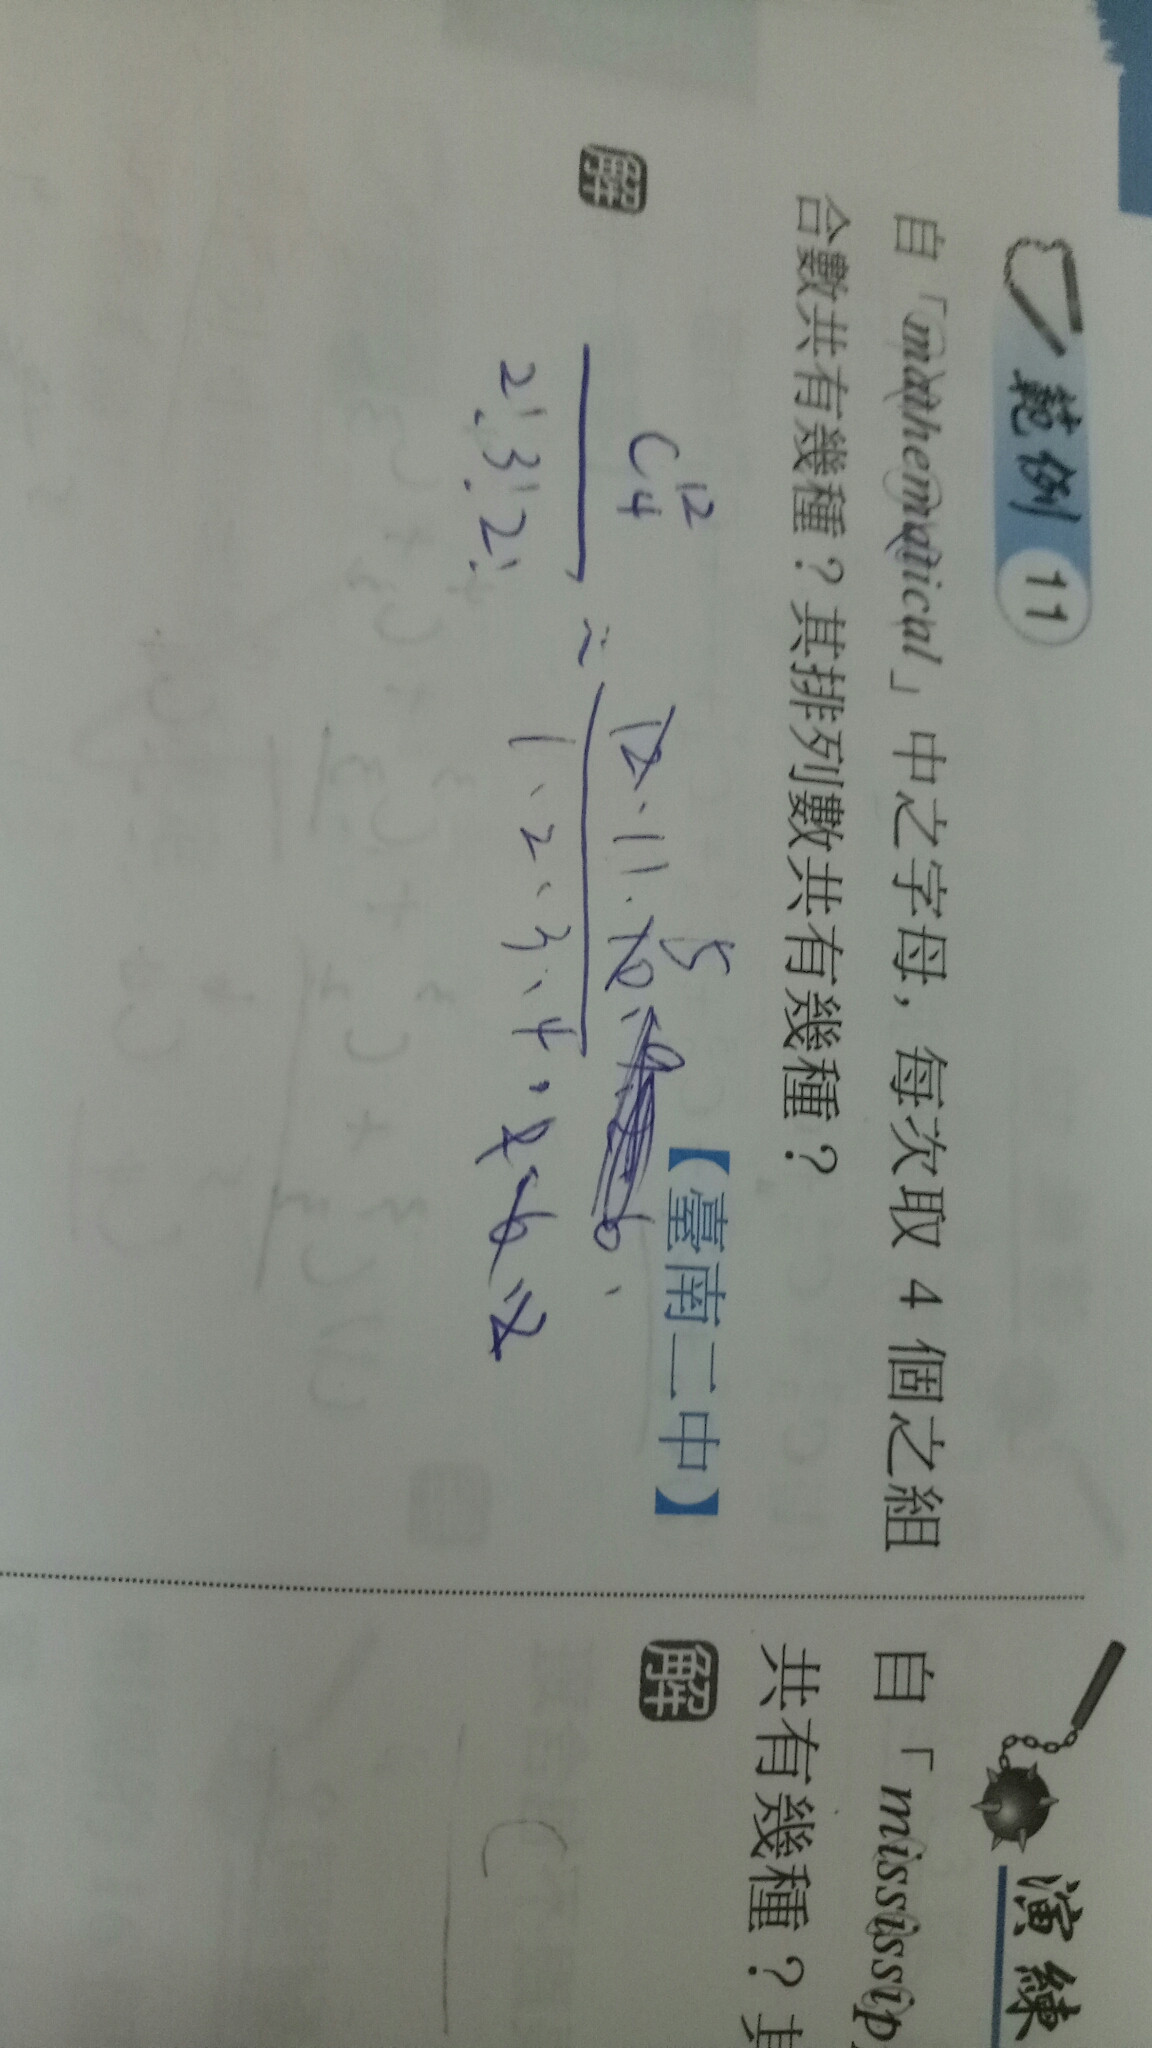 範例 11
自「mathematical」中之字母,每次取 4 個之組
合數共有幾種?其排列數共有幾種?
【臺南二中】
解
C 12 4
2! 3! 2!
=
12·11·10
5
1·2·3·4
演練
自「mississip
共有幾種?其
解